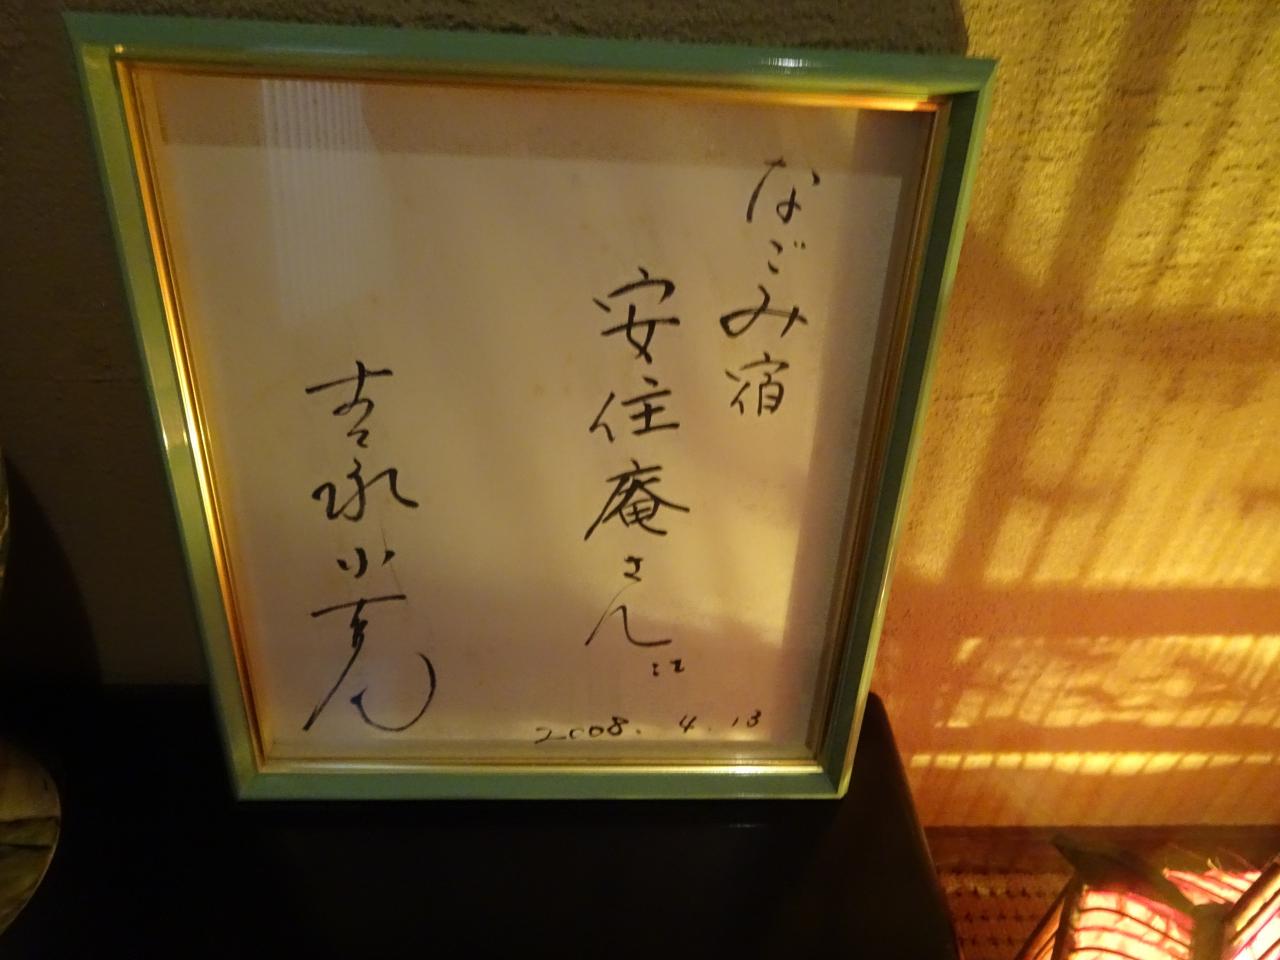 なごみ宿
安住庵さん江
2008. 4. 13
吉永小百合